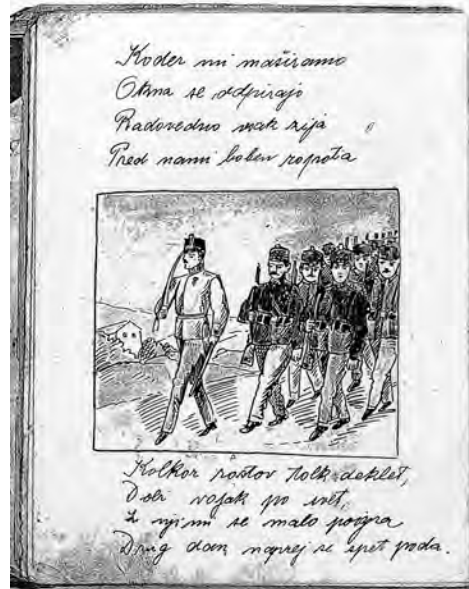 Koder mi maširamo
Okna se odpirajo
Radovedno vsak zija
Pred nami boben ropota
Kolkor rostov tolk deklet,
Dobi vojak po svet,
Z njimi se malo poigra
Drug dan naprej se spet poda.